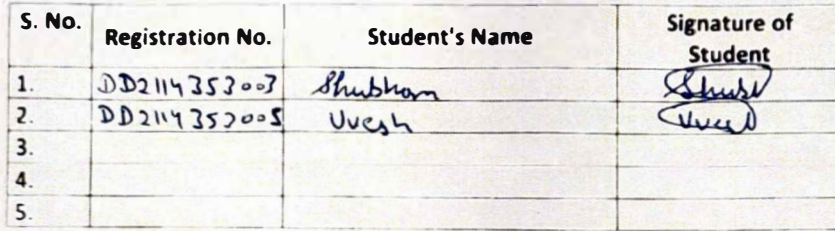 S. No. Registration No. Student's Name Signature of Student
1. DD2114353003 Shubham Shubh
2. DD2114353005 Uvesh Uvesh
3.
4.
5.